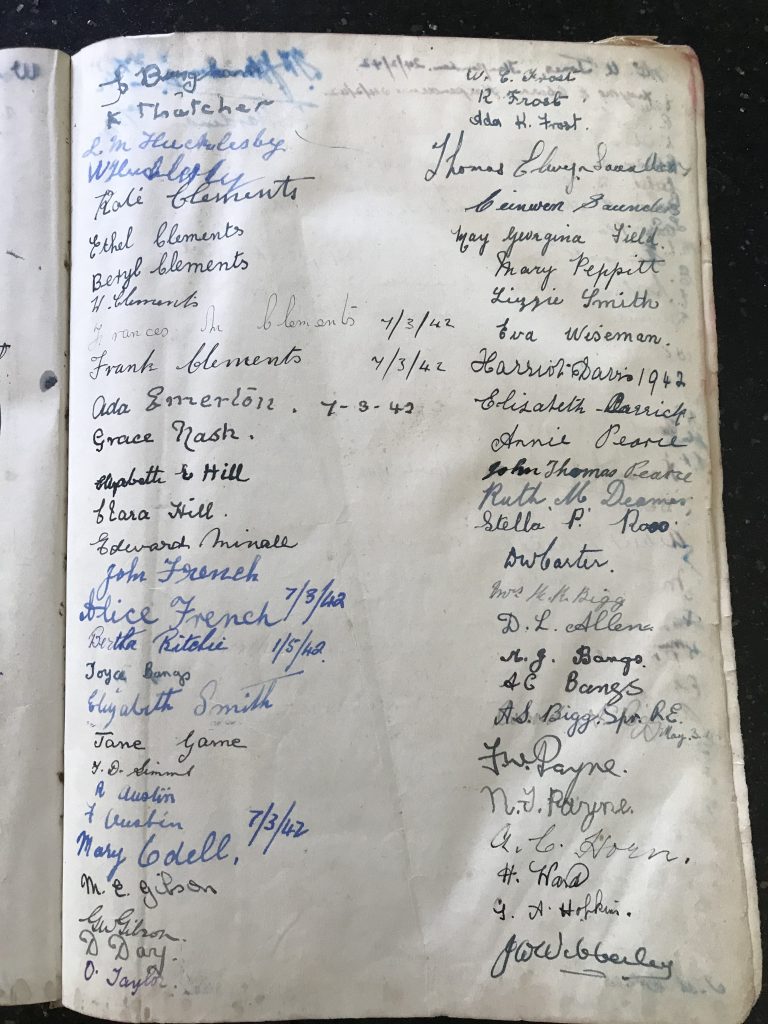 K Thatcher
L M Hucklesby
W Hucklesby
Kate Clements
Ethel Clements
Beryl Clements
W. Clements
Frances M Clements 7/3/42
Frank Clements 7/3/42
Ada Emerton. 7-3-42
Grace Nash.
Elizabeth E Hill
Clara Hill.
Edward Minall
John French
Alice French 7/3/42
Bertha Ritchie 1/5/42.
Joyce Bangs
Elizabeth Smith
Jane Game
R Austin
F Austin 7/3/42
Mary Odell.
M. E. Gibson
G W Gibson.
D Day.
O. Taylor.
W. E. Frost
K Frost
Ada K. Frost.
Thomas Saunders
Ceinwen Saunders
May Georgina Field.
Mary Peppitt
Lizzie Smith
Eva Wiseman.
Harriot Davis 1942
Elizabeth
Annie Pearce
John Thomas Pearce
Ruth. M. Deamer.
Stella P. Ross.
D W Carter.
Mrs K. K. Bigg
D. L. Allen.
A. J. Bangs.
A E Bangs
A. S. Bigg. Spr. R.E.
May. 3
F. W. Payne.
N. J. Payne.
A. C. Horn.
H. Ward
G. A. Hopkins.
J W Webberley